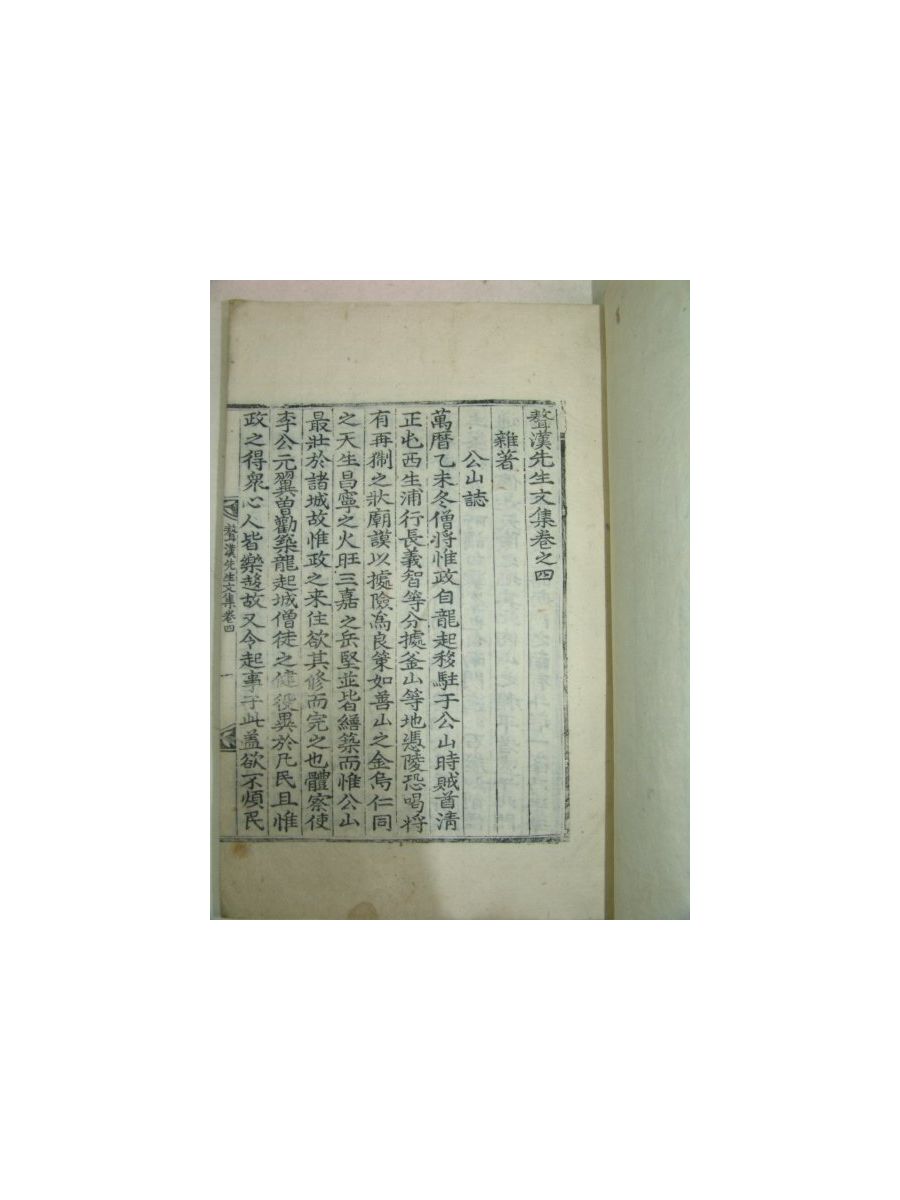 鰲漢先生文集卷之四
雜著
公山誌
萬曆乙未冬僧將惟政自龍起移駐于公山時賊酋淸
正屯西生浦行長義智等分據釜山等地憑陵恐喝將
有再猘之狀廟謨以據險爲良策如善山之金烏仁同
之天生昌寧之火旺三嘉之岳堅並皆繕築而惟公山
最壯於諸城故惟政之来住欲其修而完之也體察使
李公元翼曾勸築龍起城僧徒之健役異於凡民且惟
政之得衆心人皆樂趍故又令起事于此盖欲不煩民
鰲漢先生文集卷四
一